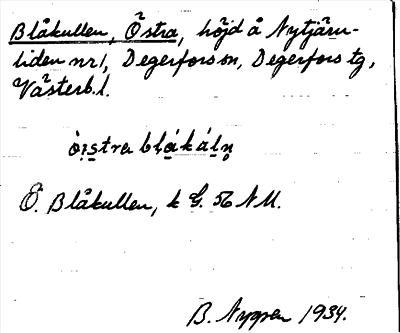 Blåkullen, Östra, höjd å Nytjäru-
liden nr 1, Degerfors sn, Degerfors tg,
Västerb. l.
Ö. Blåkullen, k G. 56 NM.
B. 1934.